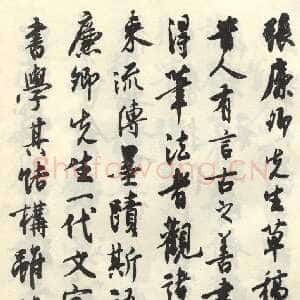 張廉卿先生草稿
昔人有言古之善書
得筆法者觀諸
來流傳墨蹟斯
廉卿先生一代文宗
書學其結構雖